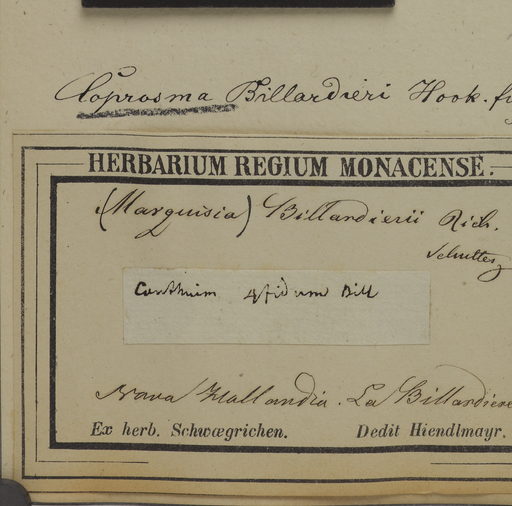 Coprosma Billardieri Hook. f
HERBARIUM REGIUM MONACENSE.
(Marquisia) Billardierii Rich.
Schultes
Canthium 4fidum Bill
Nova Hallandia. La Billardiere
Ex herb. Schwægrichen. Dedit Hiendlmayr.